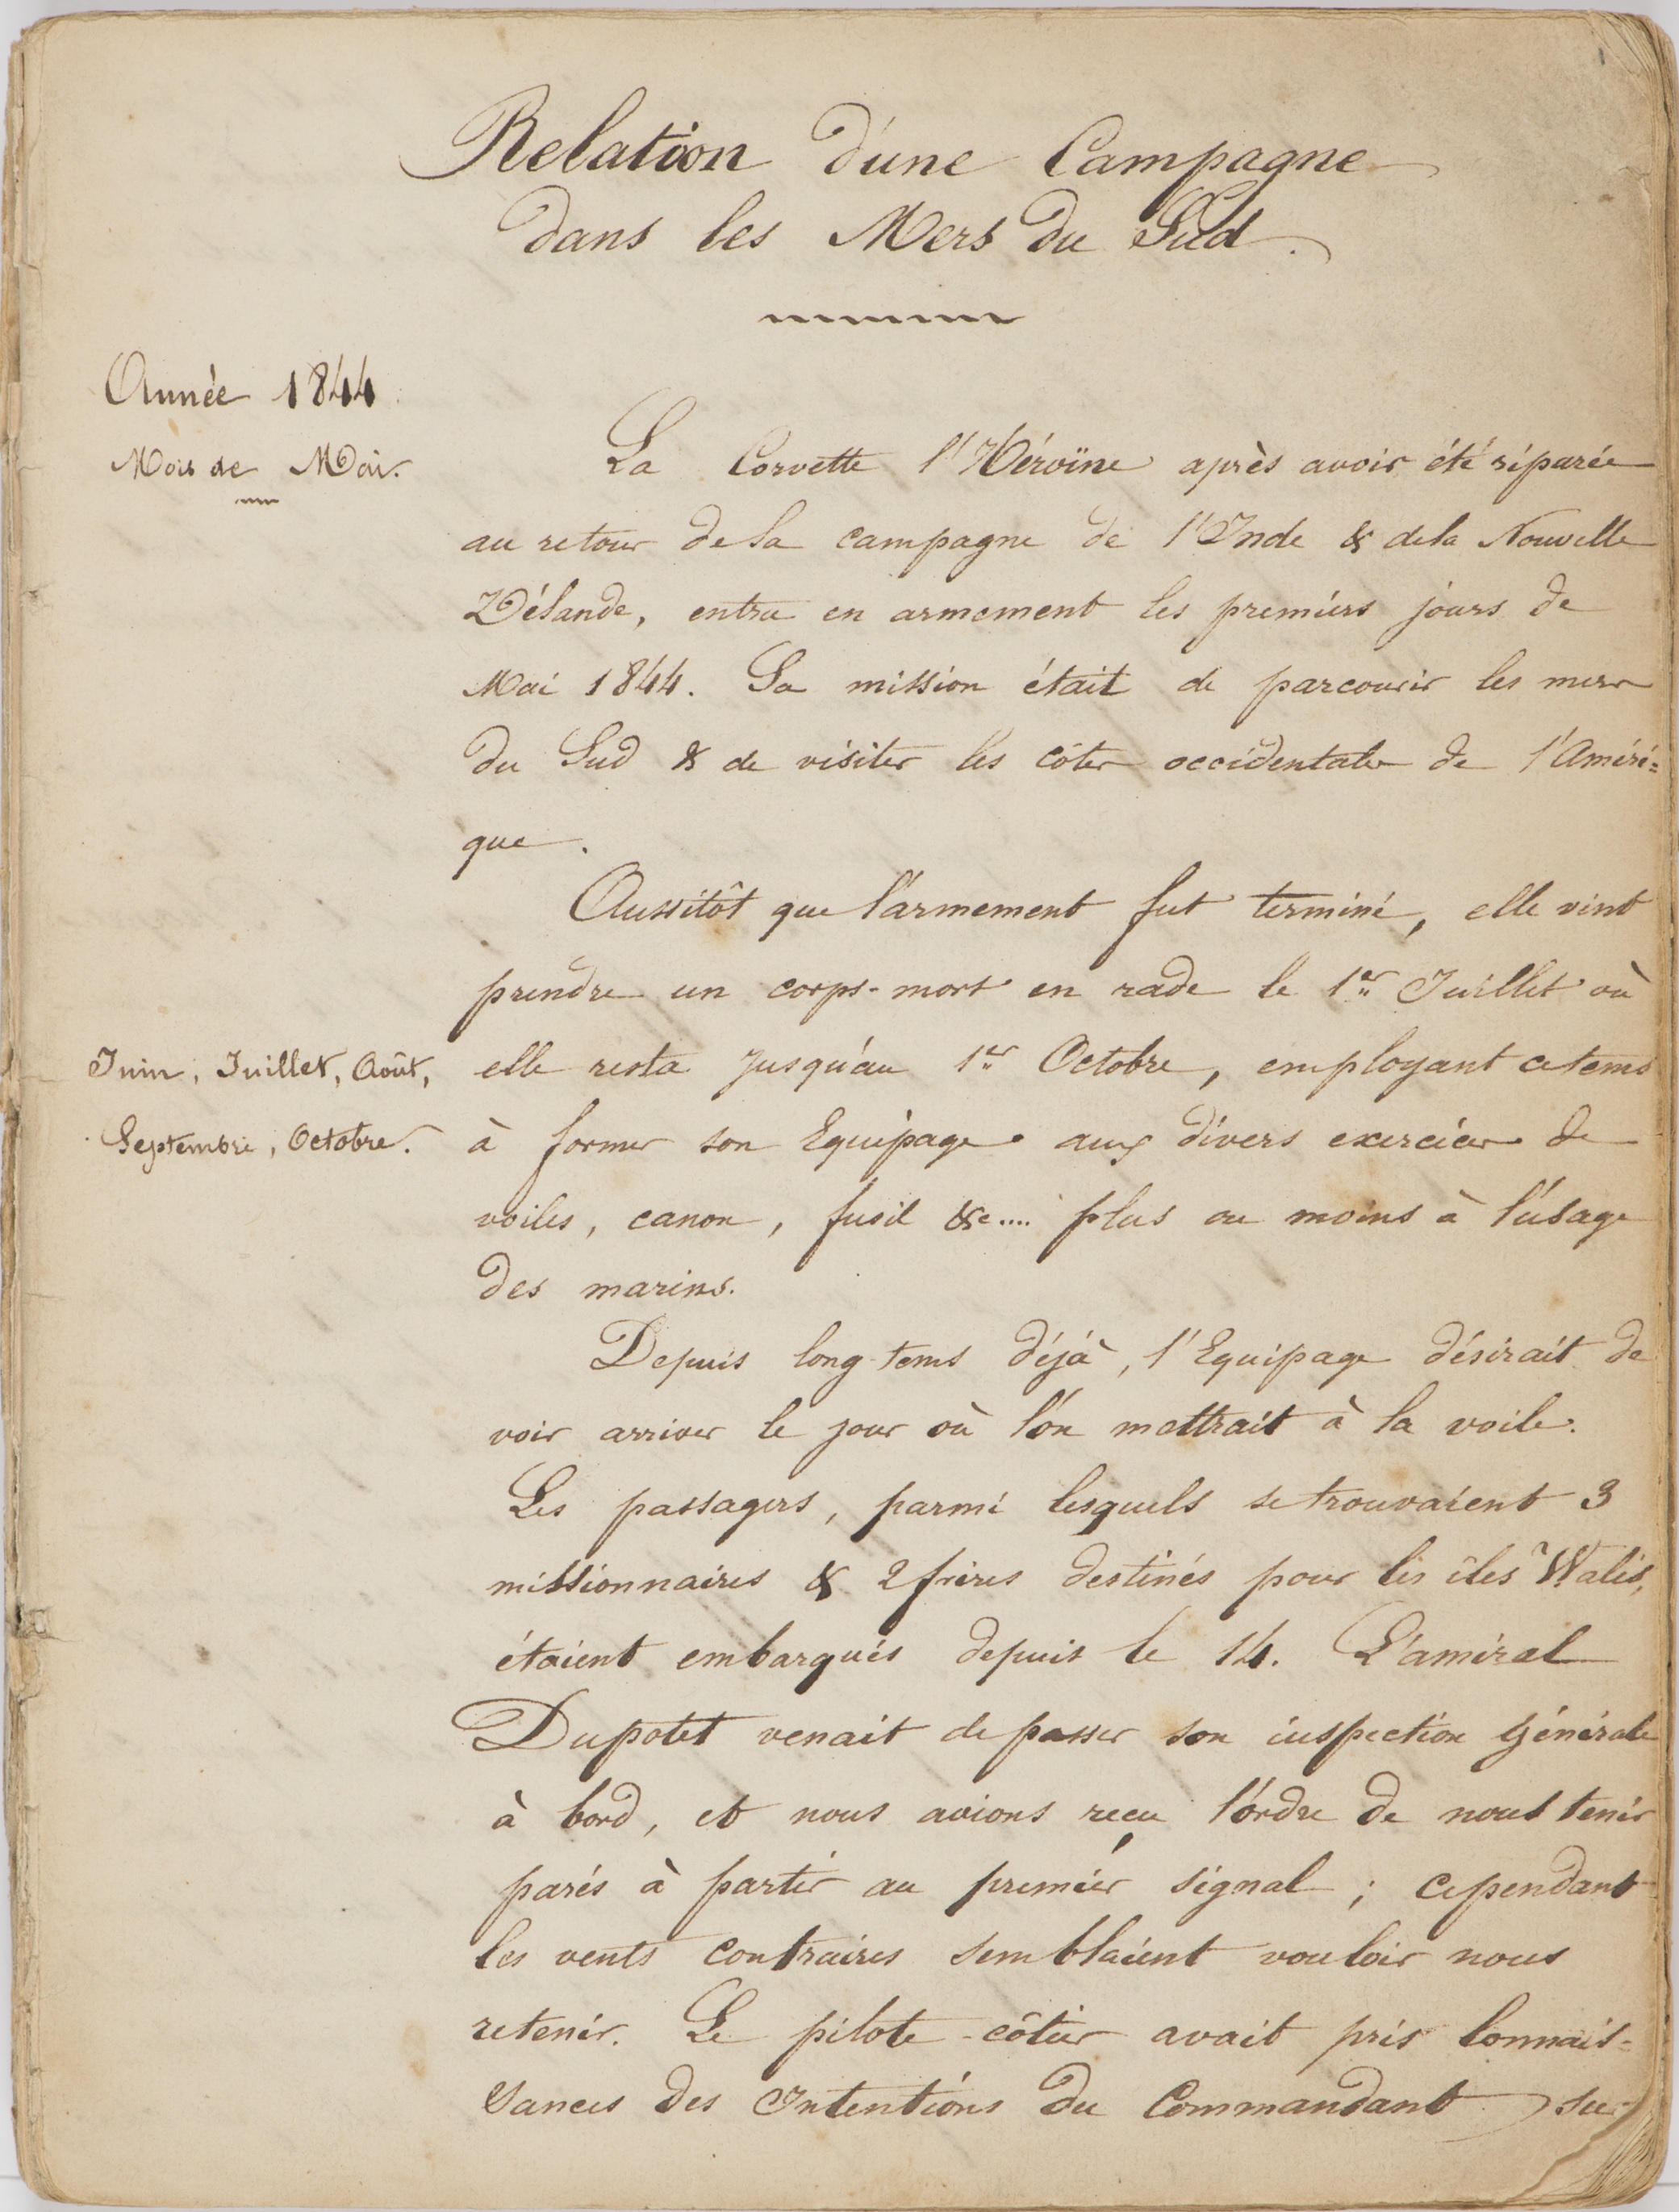 Relation d'une Campagne
dans les Mers du Sud.
Année 1844
Mois de Mai.
La Corvette l'Héroïne après avoir été réparée
au retour de la campagne de l'Inde & de la Nouvelle
Zélande, entra en armement les premiers jours de
Mai 1844. Sa mission était de parcourir les mers
du Sud & de visiter les côtes occidentales de l'Améri=
que.
Aussitôt que l'armement fut terminé, elle vint
prendre un corps-mort en rade le 1er Juillet où
Juin, Juillet, Août,
Septembre, Octobre.
elle resta jusqu'au 1er Octobre, employant ce tems
à former son Equipage aux divers exercices de
voiles, canon, fusil &c.... plus ou moins à l'usage
des marins.
Depuis long-tems déjà, l'Equipage désirait de
voir arriver le jour où l'on mettrait à la voile.
Les passagers, parmi lesquels se trouvaient 3
missionnaires & 2 frères destinés pour les îles Walis,
étaient embarqués depuis le 14. L'amiral
Dupotet venait de passer son inspection générale
à bord, et nous avions reçu l'ordre de nous tenir
parés à partir au premier signal ; cependant
les vents contraires semblaient vouloir nous
retenir. Le pilote-côtier avait pris connais-
sances des Intentions du Commandant sur